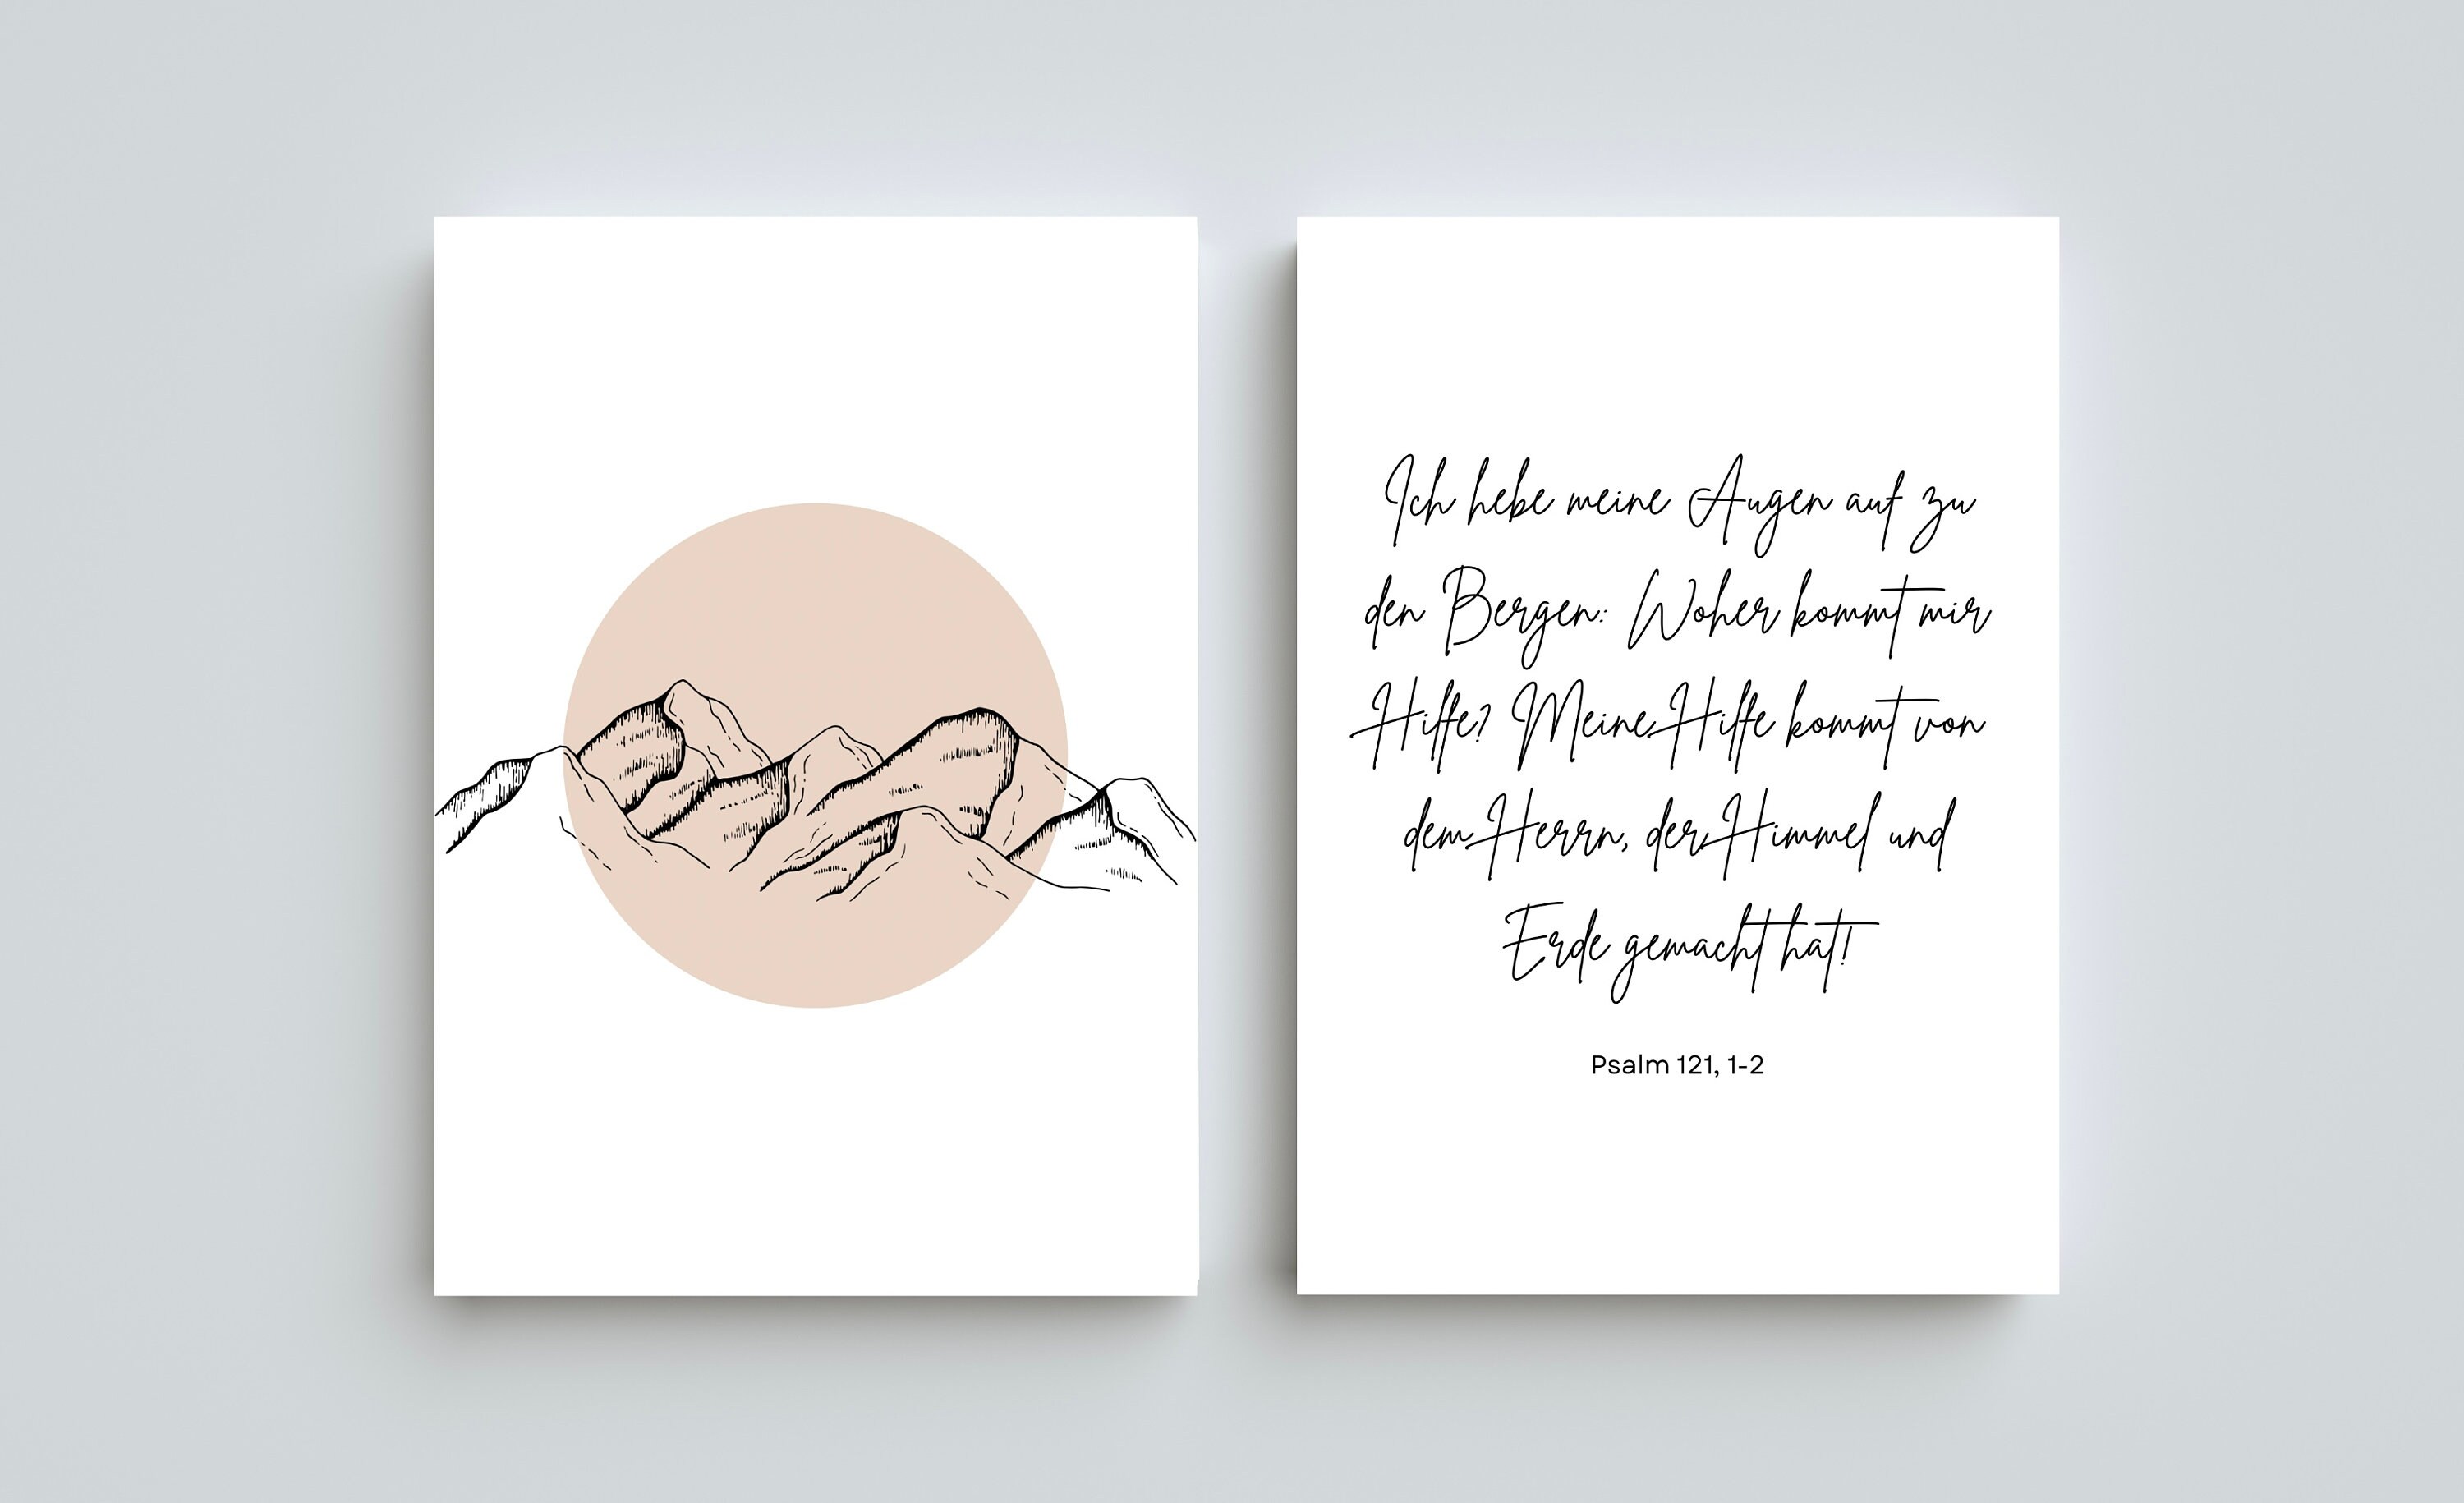 Ich hebe meine Augen auf zu
den Bergen: Woher kommt mir
Hilfe? Meine Hilfe kommt von
dem Herrn, der Himmel und
Erde gemacht hat!
Psalm 121, 1-2